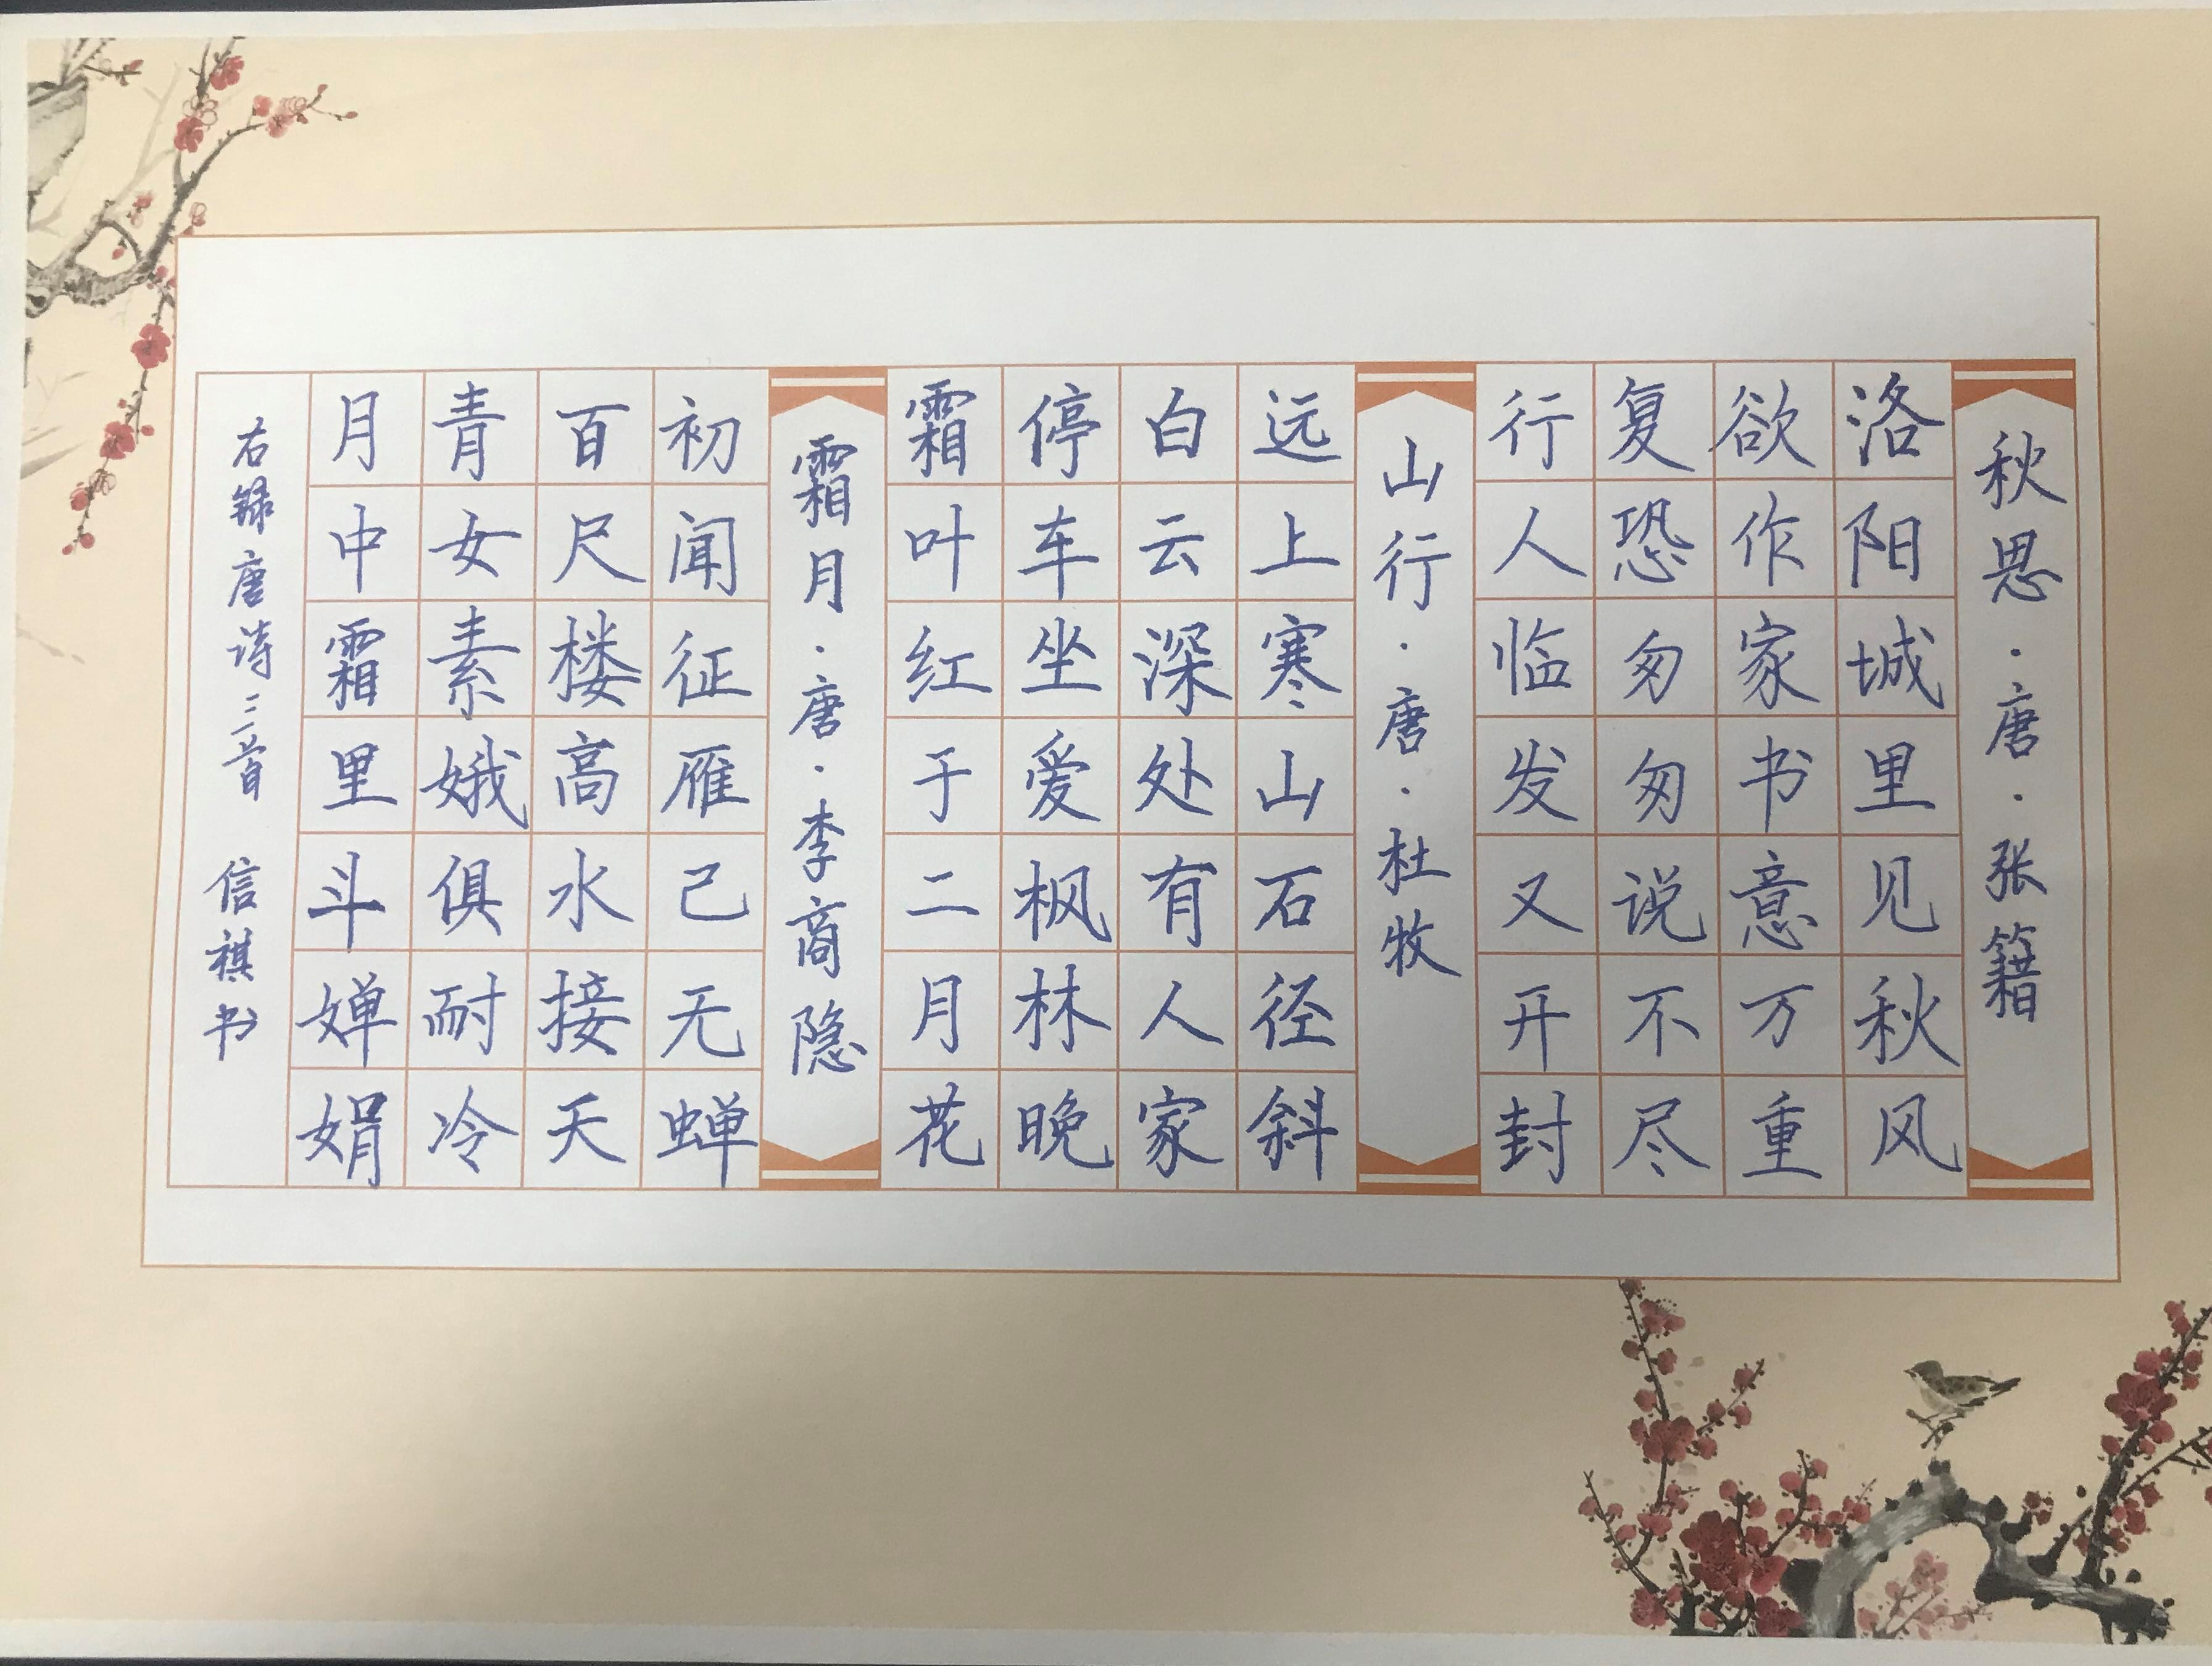 秋思·唐·张籍
洛阳城里见秋风
欲作家书意万重
复恐匆匆说不尽
行人临发又开封
山行·唐·杜牧
远上寒山石径斜
白云深处有人家
停车坐爱枫林晚
霜叶红于二月花
霜月·唐·李商隐
初闻征雁己无蝉
百尺楼高水接天
青女素娥俱耐冷
月中霜里斗婵娟
右録唐诗三首 信祺书